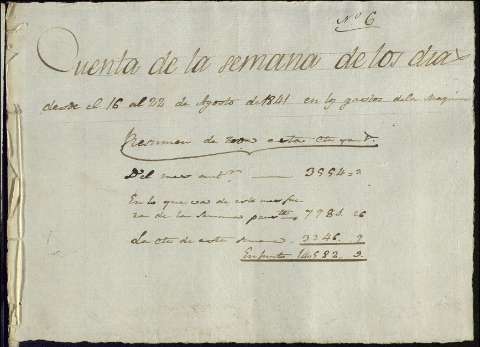 Nº 6
Cuenta de la semana de los dias
desde el 16 al 22 de Agosto de 1841 en los gastos de la Maquina
Resumen de toda esta
Del mes antr 3554
En lo que va de este mes fue
ra de la semana 26
La cta de esta semana. 3246. 9
En junto 14582. 9.